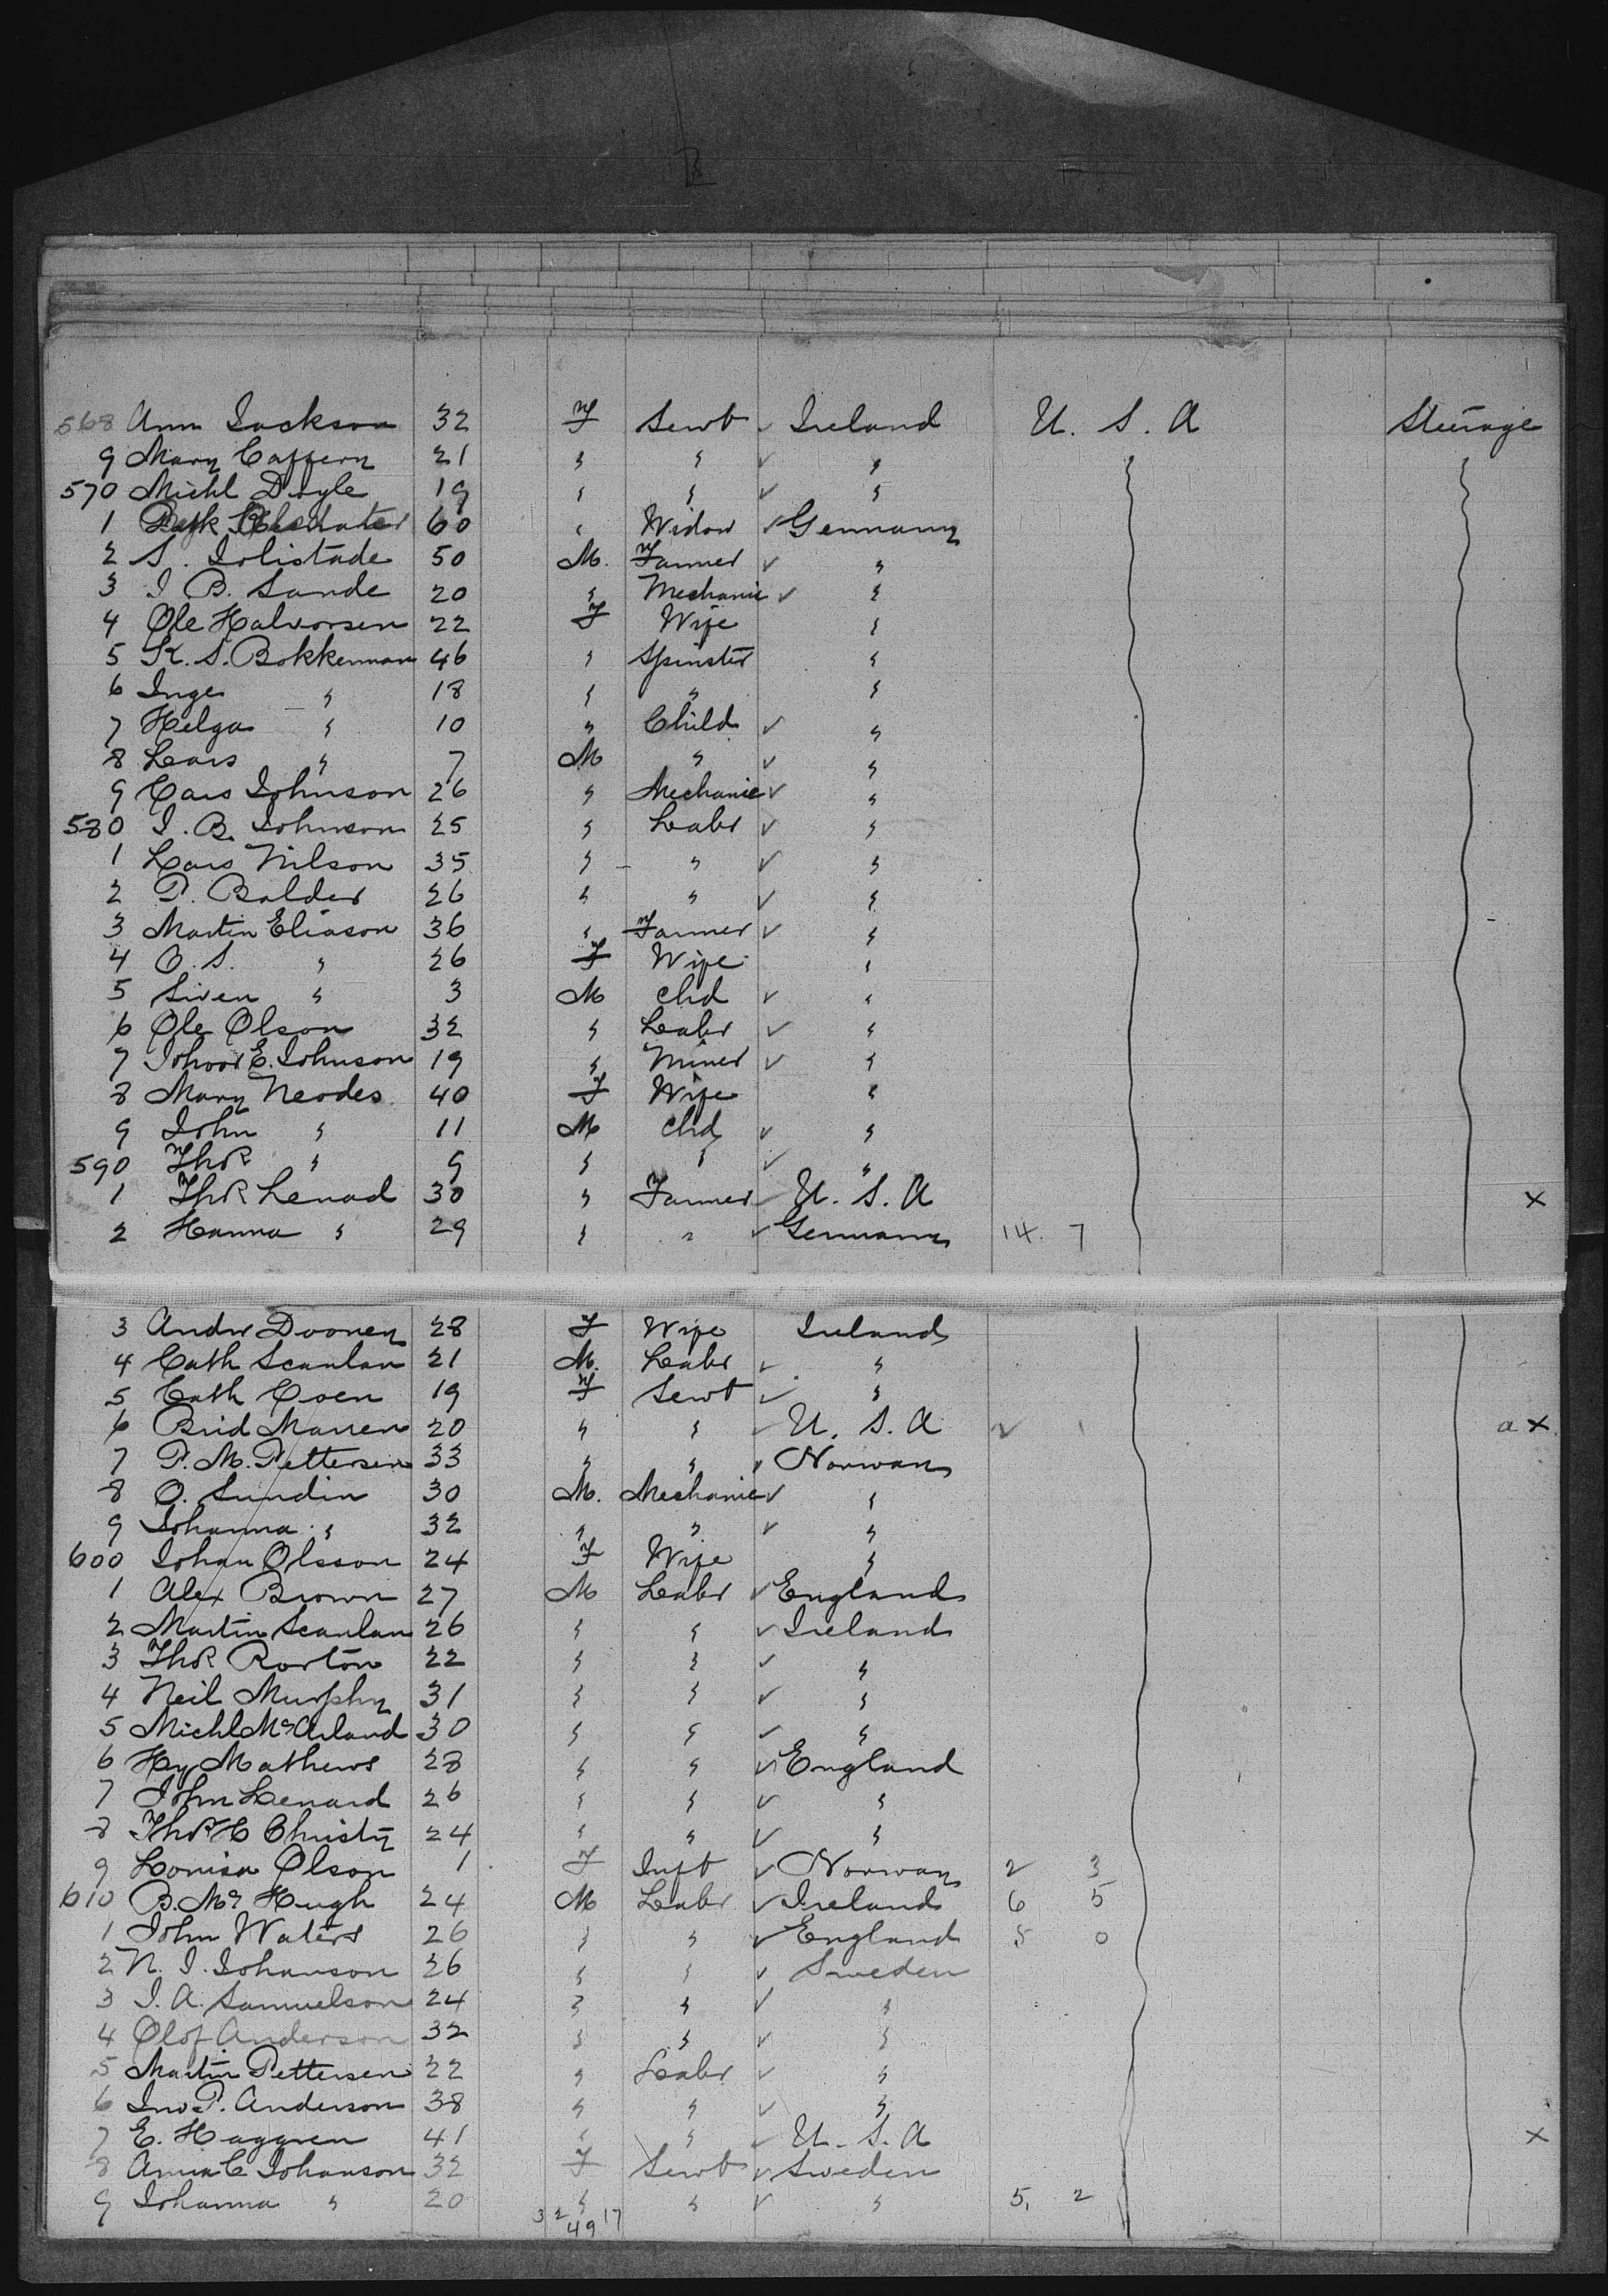 568 Ann Jackson 32 F Servt ✓ Ireland U. S. A Steerage
9 Mary Caffery 21 " " ✓ "
570 Michl Doyle 19 " " ✓ "
1 60 " Widow ✓ Germany
2 S. Jolistade 50 M. Farmer ✓ "
3 J B. Sande 20 " Mechanic ✓ "
4 Ole Halvorsen 22 F Wife "
5 K. S. Bokkenman 46 " Spinster "
6 Inge " 18 " " "
7 Helga " 10 " Child ✓ "
8 Lars " 7 M " ✓ "
9 Cars Johnson 26 " Mechanic ✓ "
580 J. B. Johnson 25 " Labr ✓ "
1 Lars Nilson 35 " " ✓ "
2 P. Balder 26 " " ✓ "
3 Martin Eliason 36 " Farmer ✓ "
4 O. S. " 26 F Wife "
5 Siven " 3 M chd ✓ "
6 Ole Olson 32 " Labr ✓ "
7 E. Johnson 19 " Miner ✓ "
8 Mary Neodes 40 F Wife "
9 John " 11 M chd ✓ "
590 Thos " 9 " " ✓ "
1 Thos Lenad 30 " Farmer ✓ U. S. A x
2 Hanna " 29 " " ✓ Germany 14. 7
3 Andw Dooney 28 F Wife Ireland
4 Cath Scanlan 21 M. Labr ✓ "
5 Cath Coen 19 F Servt ✓ "
6 Brid Marren 20 " " ✓ U. S. A ✓ a x
7 P. M. Pettersen 33 " " ✓ Norway
8 O. Sundin 30 M. Mechanic ✓ "
9 Johanna " 32 " " ✓ "
600 Johan Olsson 24 F Wife "
1 Alex Brown 27 M Labr ✓ England
2 Martin Scanlan 26 " " ✓ Ireland
3 Thos Rorton 22 " " ✓ "
4 Neil Murphy 31 " " ✓ "
5 Michl McArland 30 " " ✓ "
6 Hy Mathews 28 " " ✓ England
7 John Lenard 26 " " ✓ "
8 Thos H Christy 24 " " ✓ "
9 Louisa Olson 1 F Inft ✓ Norway 2 3
610 B. Mc Hugh 24 M Labr ✓ Ireland 6 5
1 John Waters 26 " " ✓ England 5 0
2 N. J. Johanson 26 " " ✓ Sweden
3 J. A. Samuelson 24 " " ✓ "
4 Olof Anderson 32 " " ✓ "
5 Martin Pettersen 22 " Labr ✓ "
6 Jno P. Anderson 38 " " ✓ "
7 E. Haggren 41 " " ✓ U. S. A x
8 Anna C Johanson 32 F Servt ✓ Sweden
9 Johanna " 20 " " ✓ " 5. 2
3 2 17
49